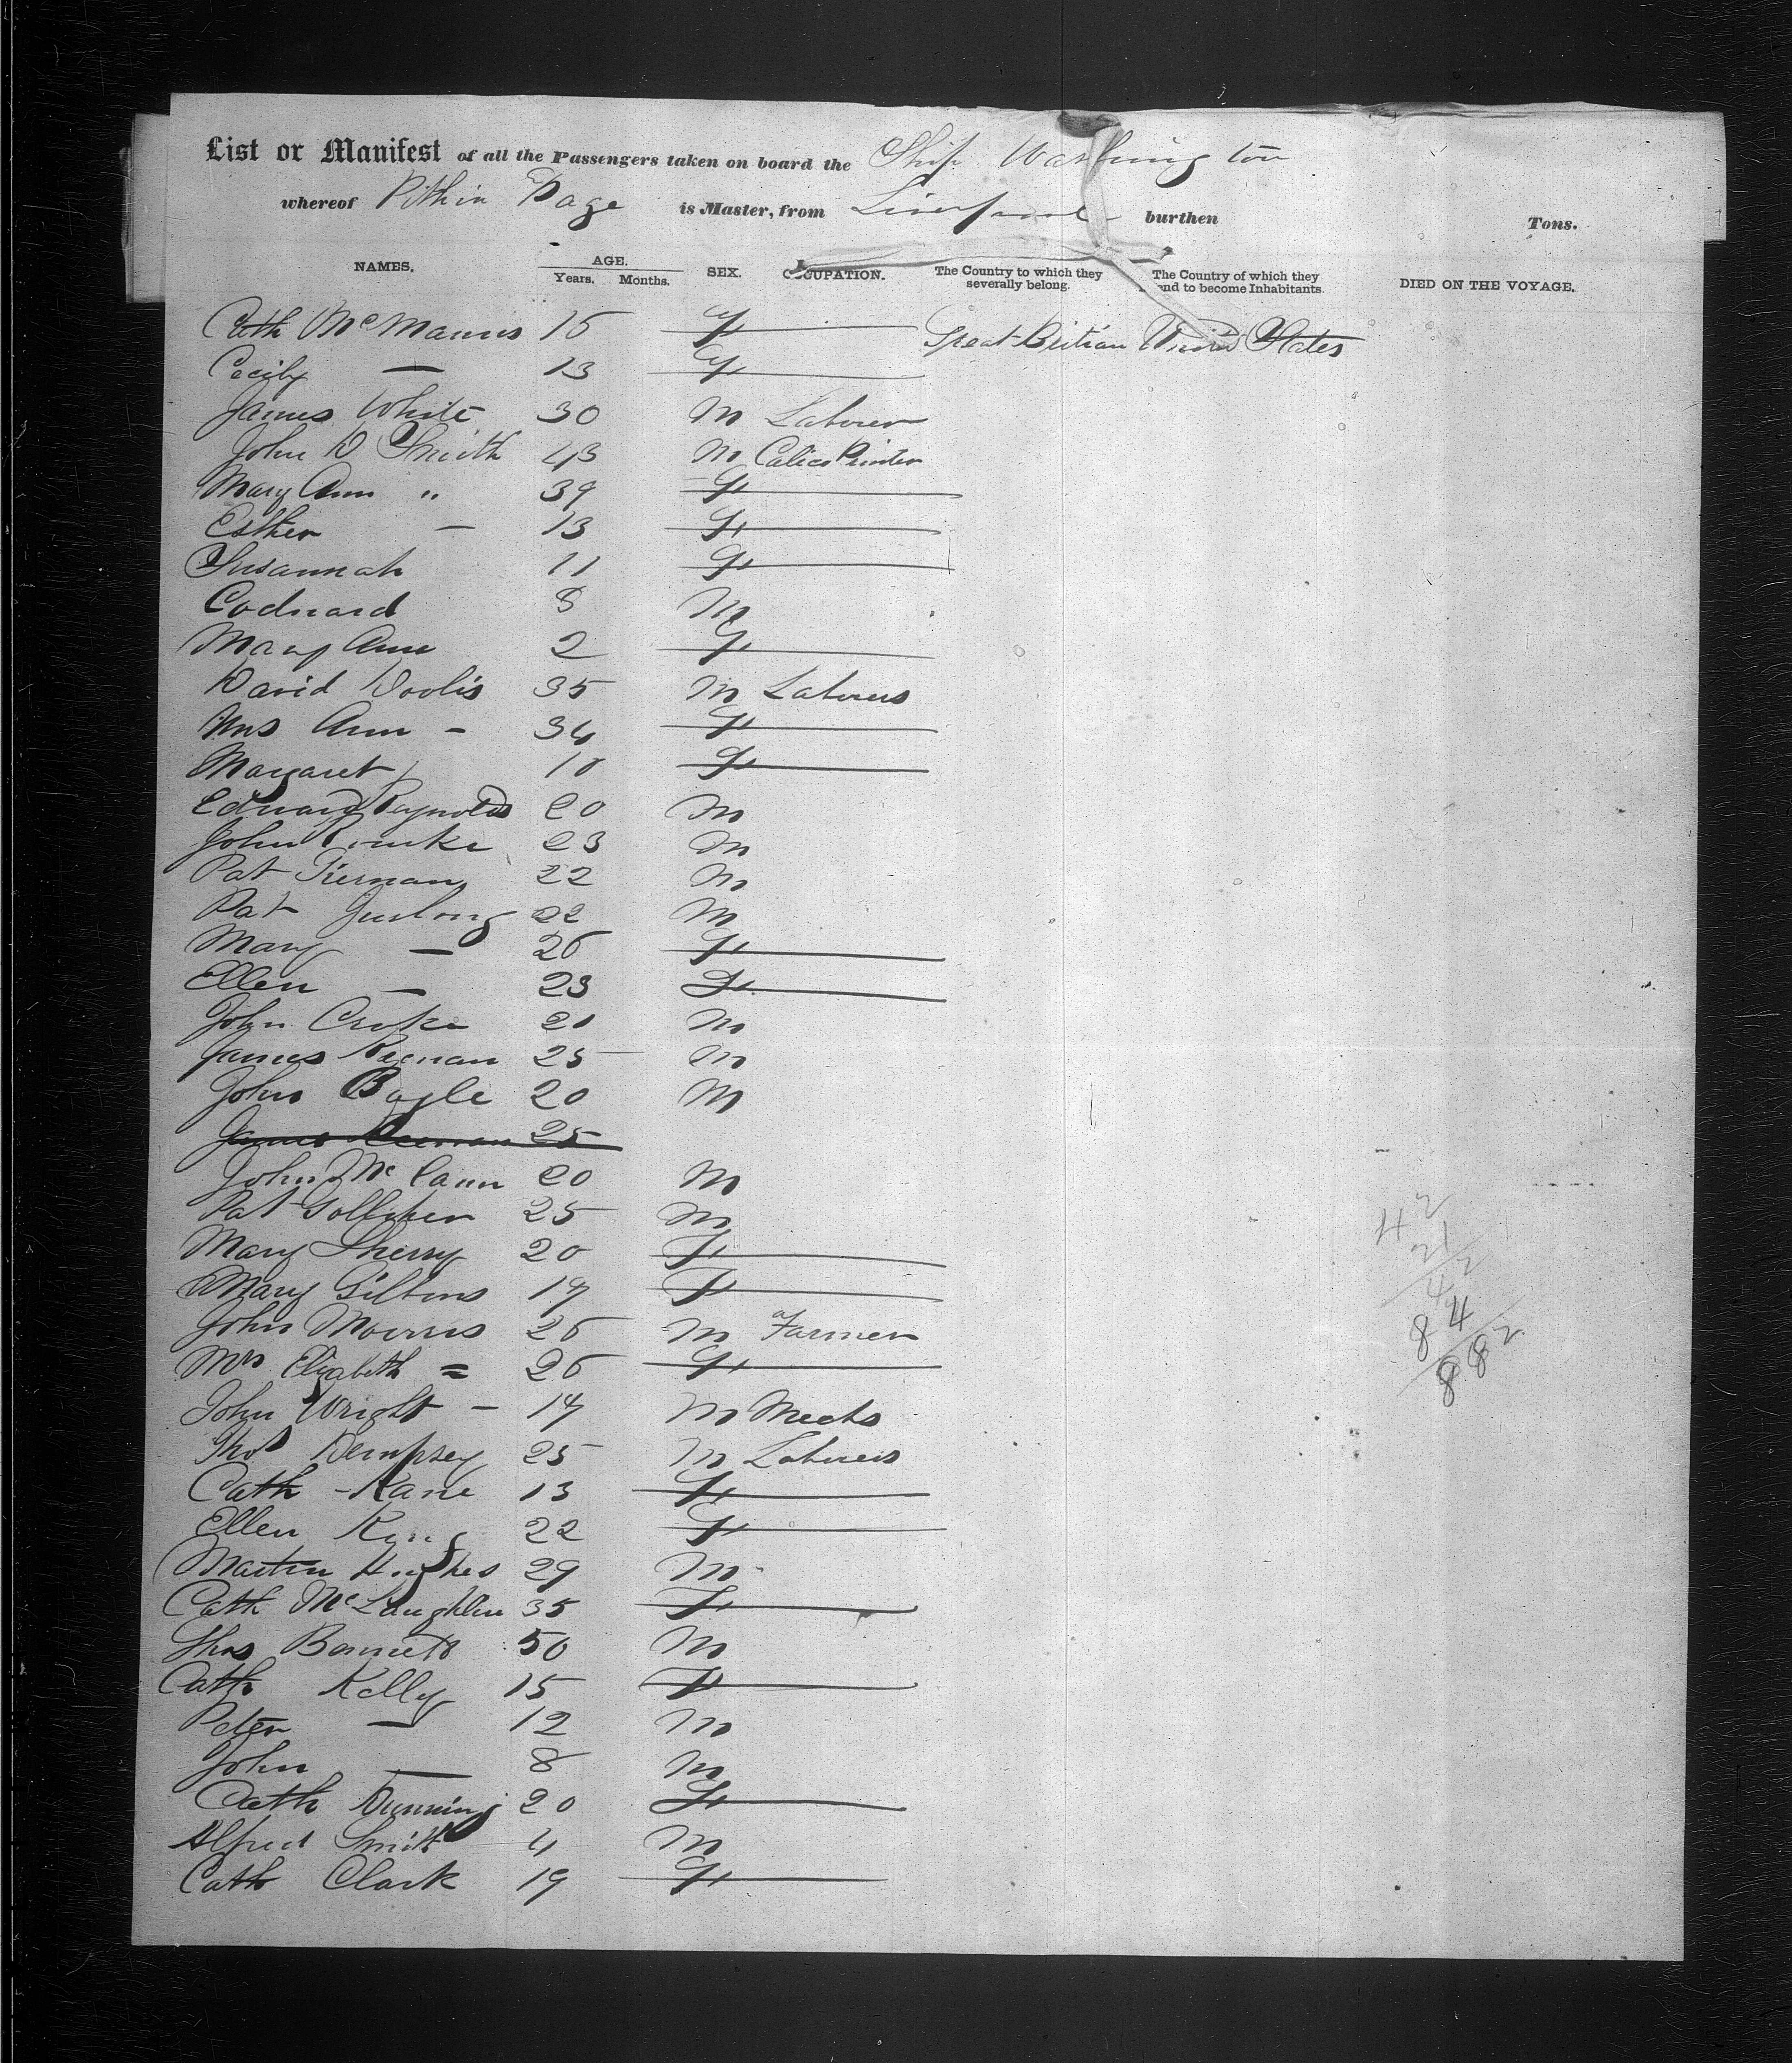 List or Manifest of all the Passengers taken on board the Ship Washington
whereof Pitkin Page is Master, from Liverpool burthen Tons.
NAMES. AGE. Years. Months. SEX. OCCUPATION. The Country to which they severally belong. The Country of which they intend to become Inhabitants. DIED ON THE VOYAGE.
Cath McManus 15 F Great Britian United States
Cecily — 13 F
James White 30 M Laborer
John D Smith 43 M Calico Printer
Mary Ann " 39 F
Esther — 13 F
Susannah 11 F
8 M
Mary Ann 2 F
David 35 M Laborers
Mrs Ann - 34 F
Margaret 10 F
Edward Reynolds 20 M
John 23 M
Pat Tiernan 22 M
Pat Furlong 22 M
Mary — 26 F
Ellen — 23 F
John Croke 20 M
James Keenan 25 M
John Bogle 20 M
James Keenan 25
John McCann 20 M
Pat 25 M
Mary Sherry 20 F
Mary Gibbons 19 F
John Morris 26 M Farmer
Mrs Elizabeth = 26 F
John Wright - 19 M Mechs
Thos Dempsey 25 M Laborers
Cath - Kane 13 F
Ellen King 22 F
Martin Hughes 29 M
Cath McLaughlin 35 F
Thos Bennett 50 M
Cath Kelly 15 F
Peter — 12 M
John — 8 M
Cath Dunning 20 F
Alfred Smith 4 M
Cath Clark 19 F
42
21
42
84
882